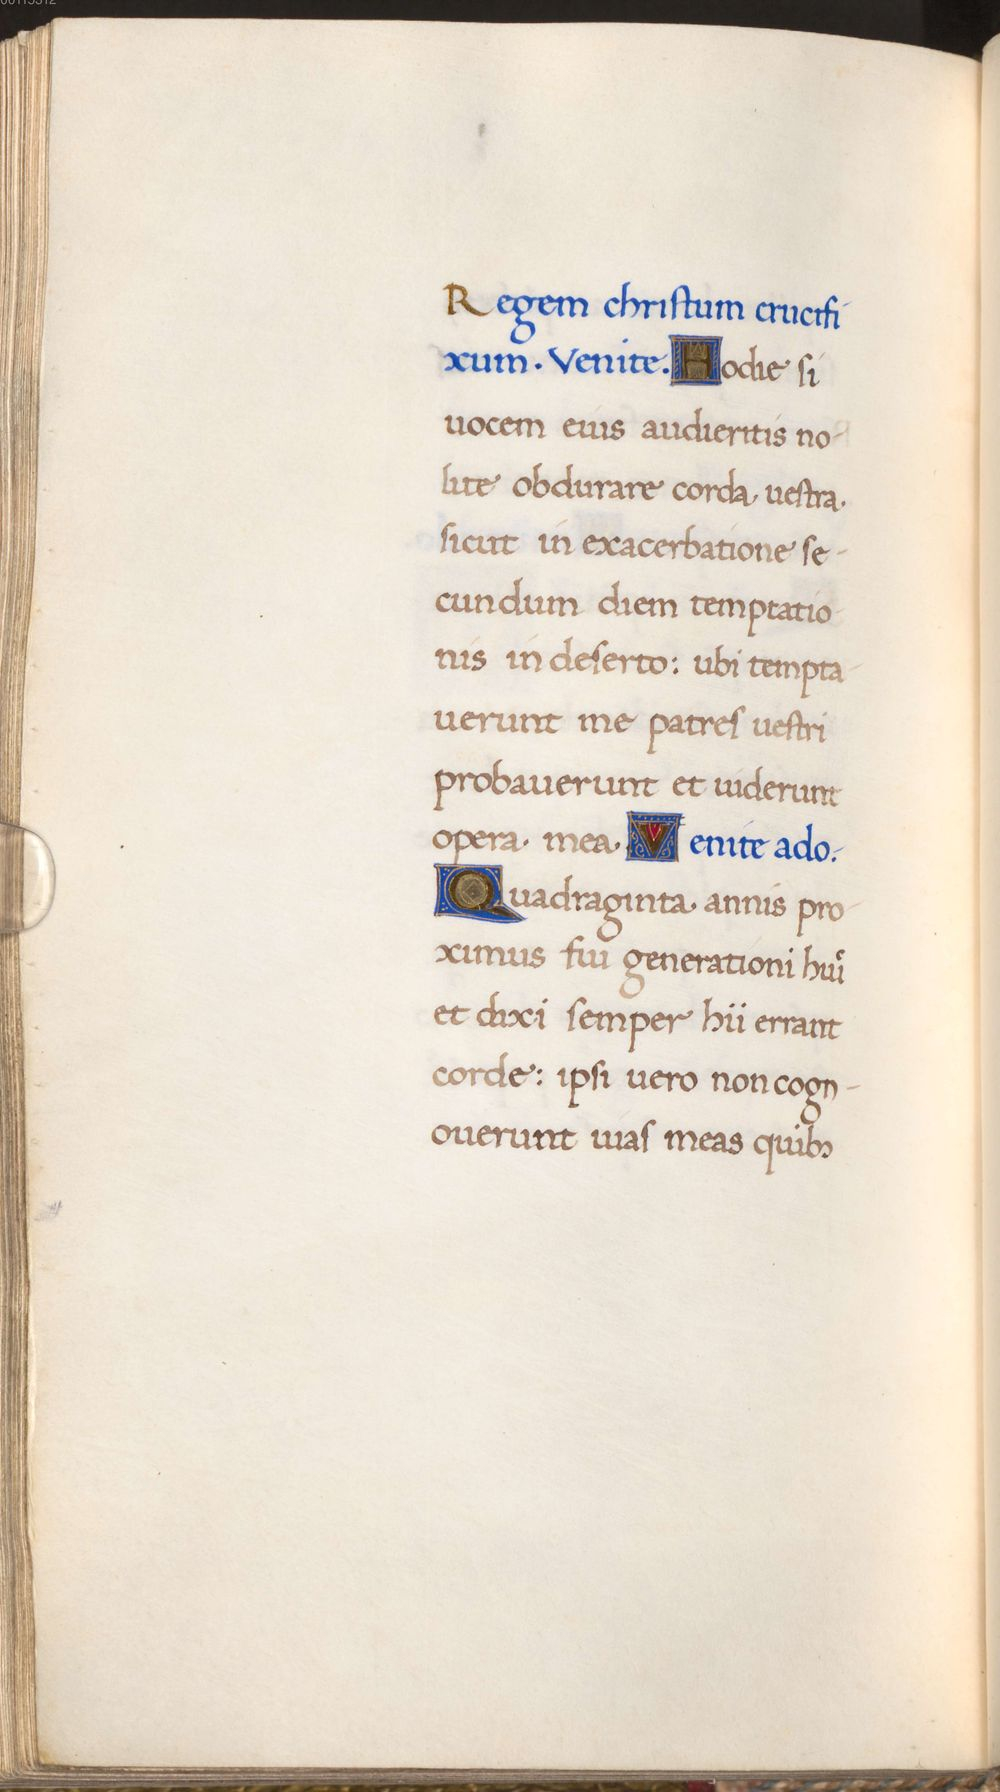 Regem christum crucifi
xum. Venite. Hodie si
uocem eius audieritis no-
lite obdurare corda uestra.
sicut in exacerbatione se-
cundum diem temptatio-
nis in deserto: ubi tempta-
uerunt me patres uestri
probauerunt et uiderunt
opera mea. Venite ado.
Quadraginta annis pro-
ximus fui generationi huic
et dixi semper hii errant
corde: ipsi uero non cogn-
ouerunt uias meas quibꝫ